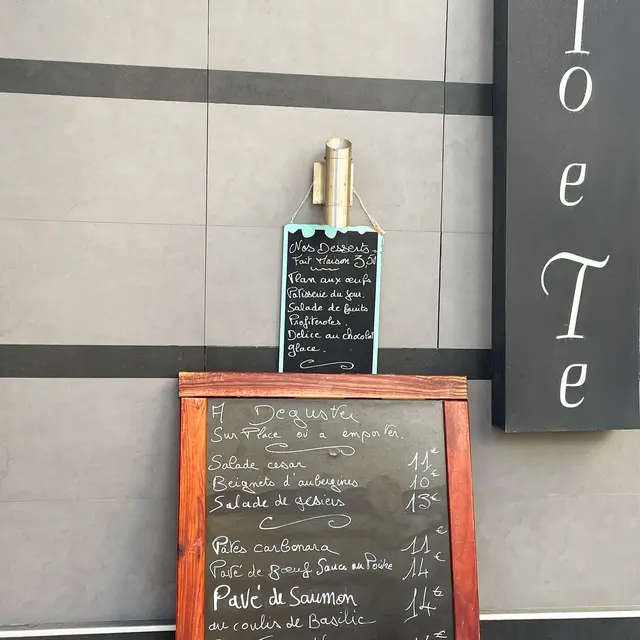 Nos Desserts
Fait Maison 3,50
Flan aux œufs
Patisserie du jour.
Salade de fruits
Profiteroles.
Délice au chocolat
glace.
A Deguster
Sur Place ou a emporter.
Salade cesar 11€
Beignets d'aubergines 10€
Salade de gesiers 13€
Pates carbonara 11€
Pavé de Boeuf Sauce au Poivre 14€
Pavé de Saumon 14€
au coulis de Basilic
o
e
T
e